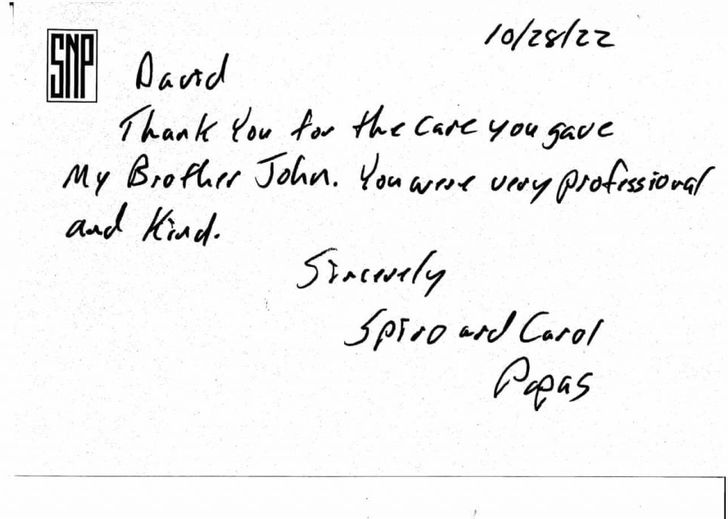 10/28/22
SNP
David
Thank You for the care you gave
My Brother John. You were very professional
and Kind.
Sincerely
Spiro and Carol
Papas